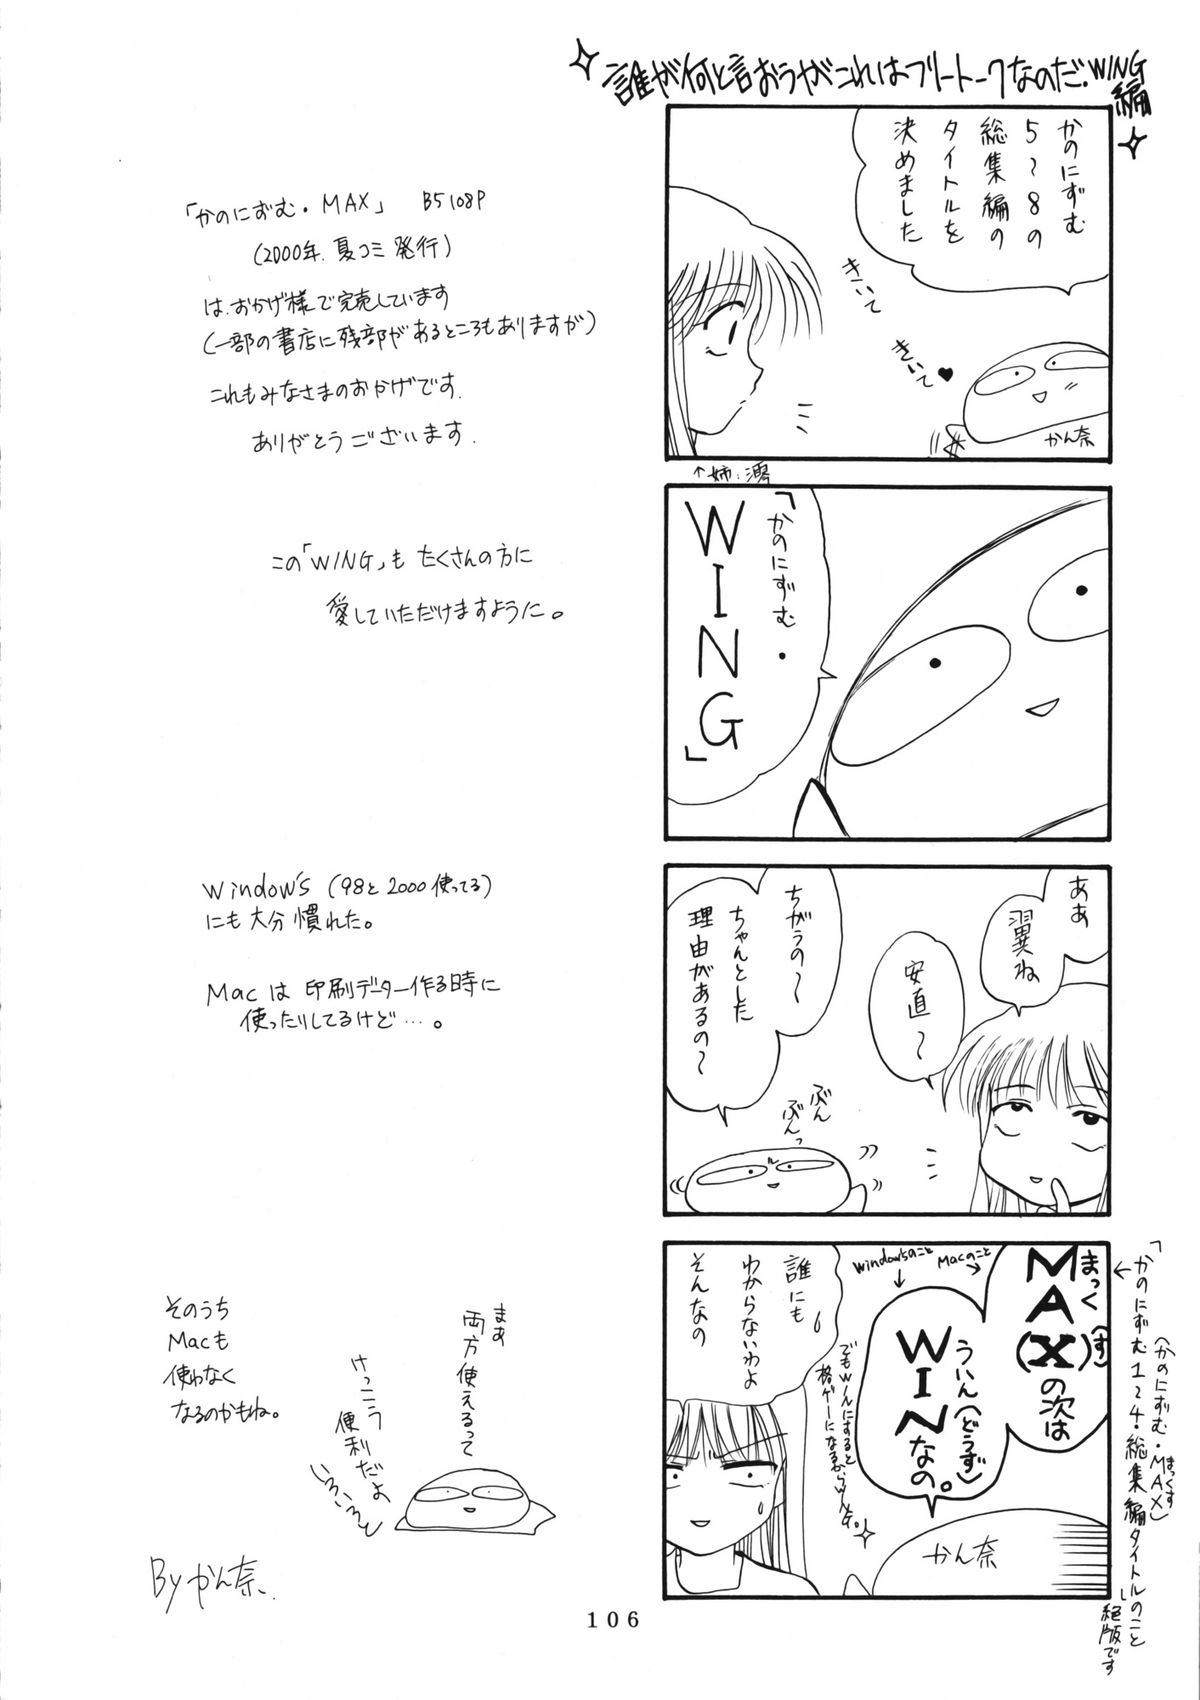 誰が何と言おうがこれはフリートークなのだ。WING
編
かのにずむ
5~8の
総集編の
タイトルを
決めました
きいて
きいて♥
かん奈
↑姉:澪
「かのにずむ・
WING」
ああ
翼ね
安直~
ちがうの~
ちゃんとした
理由があるの~
ぶん
ぶんっ
まっく(す)
MA(X)の次は
Macのこと
Window'sのこと
ういん(どうず)
WINなの。
でもWINにすると
格ゲーになるからWING。
誰にも
わからないわよ
そんなの
かん奈
(かのにずむ・MAX)
まっくす
「かのにずむ1~4・総集編タイトルのこと」
絶版です
「かのにずむ・MAX」 B5 108P
(2000年.夏コミ発行)
は、おかげ様で完売しています
(一部の書店に残部があるところもありますが)
これもみなさまのおかげです.
ありがとうございます.
この「WING」も たくさんの方に
愛していただけますように。
Window's (98と2000使ってる)
にも大分慣れた。
Macは 印刷データー作る時に
使ったりしてるけど…。
まあ
両方使えるって
けっこう
便利だよ
いろいろと
そのうち
Macも
使わなく
なるのかもね。
By かん奈、
106